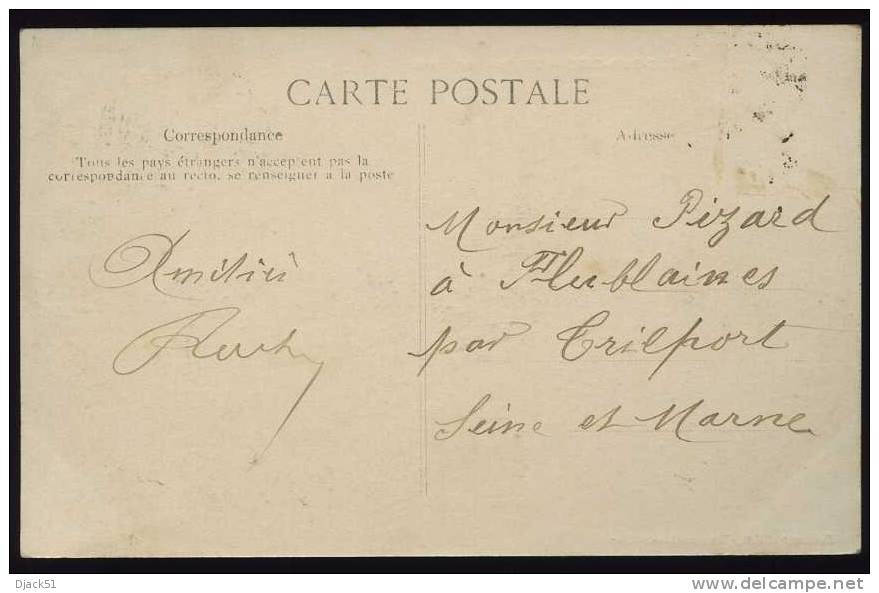 CARTE POSTALE
Correspondance
Tous les pays étrangers n'acceptent pas la
correspondance au recto, se renseigner à la poste
Adresse
Amitiés
Monsieur Pizard
à
par Trilport
Seine et Marne
Djack51
www.delcampe.net